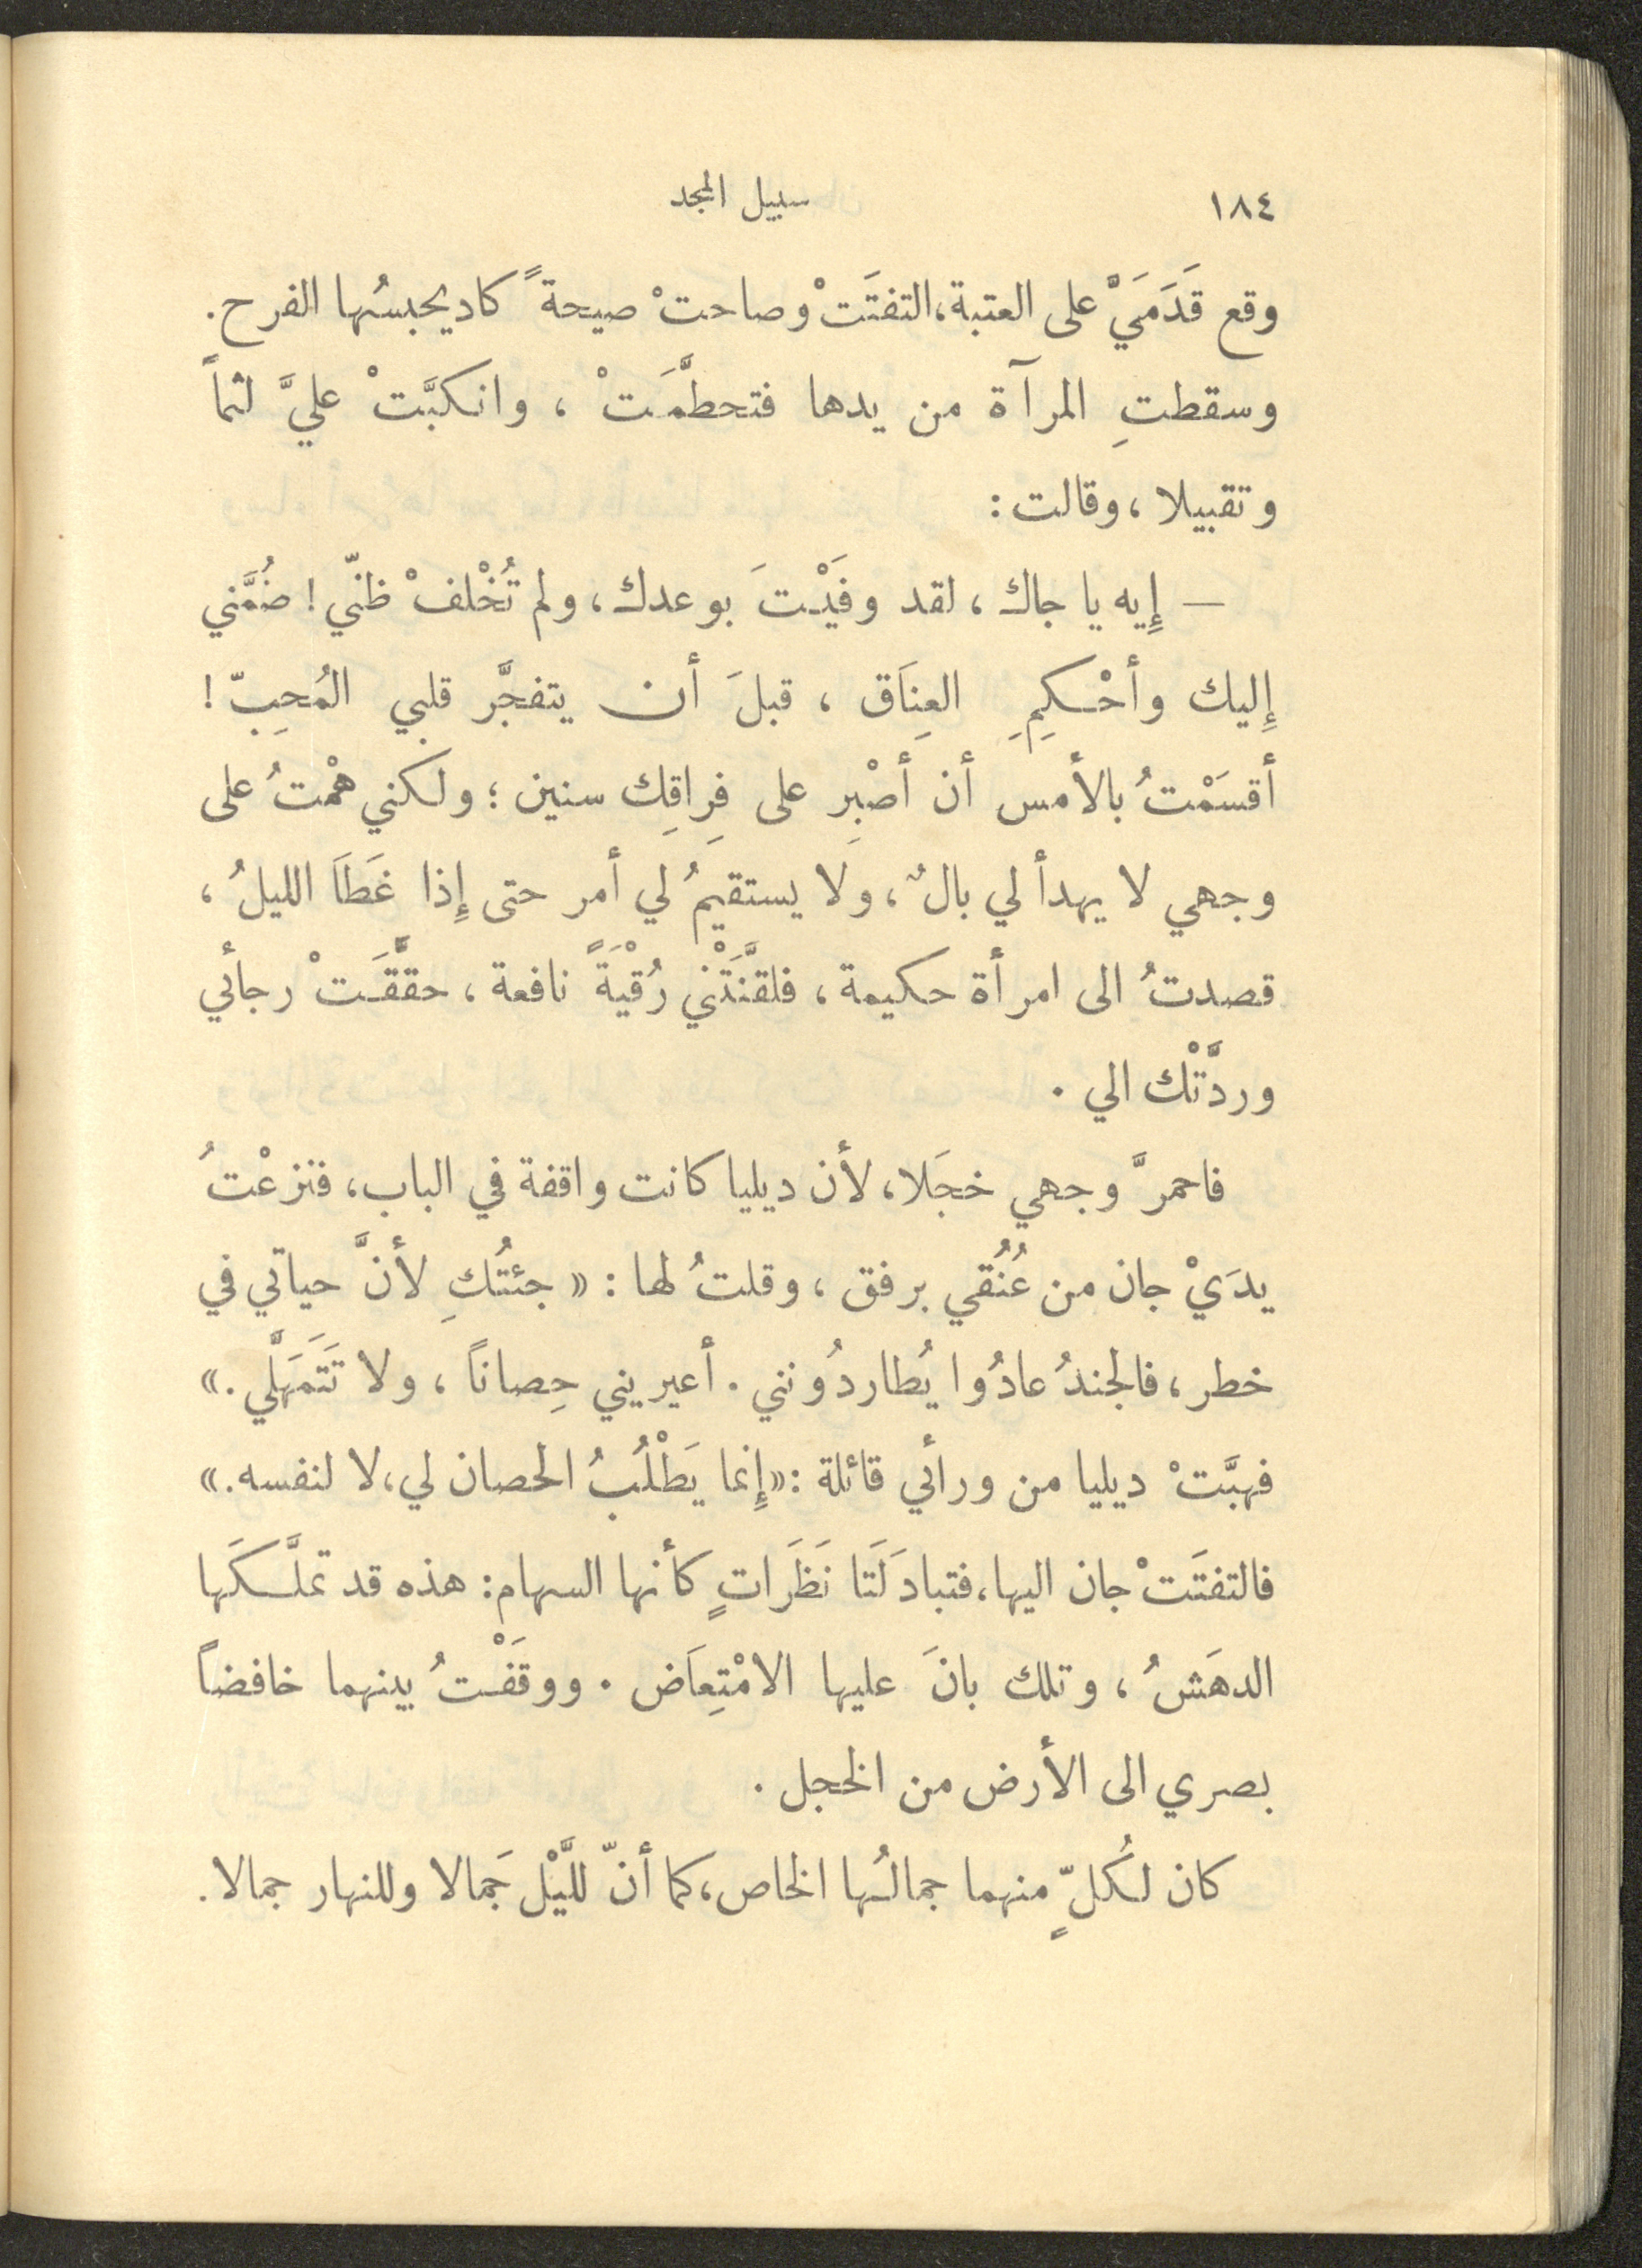 ١٨٤
سبيل المجد
وقع قَدَمَيَّ على العتبة، التفتَتْ وصاحتْ صيحةً كاد يحبسُها الفرح.
وسقطتِ المرآة من يدها فتحطَّمَتْ ، وانكبَّتْ عليَّ لثماً
وتقبيلا ، وقالت :
— إِيه يا جاك ، لقد وفَيْتَ بوعدك ، ولم تُخْلفْ ظنّي ! ضُمَّني
إِليك وأحْكِمِ العِنَاق ، قبلَ أن يتفجَّر قلبي المُحِبّ !
أقسَمْتُ بالأمس أن أصْبِر على فِرَاقِك سنين ؛ ولكني هِمْتُ على
وجهي لا يهدأ لي بالٌ ، ولا يستقيمُ لي أمر حتى إِذا غَطَا الليلُ ،
قصدتُ الى امرأة حكيمة ، فلقَّنَتْني رُقْيَةً نافعة ، حقَّقَتْ رجائي
وردَّتْك الي .
فاحمرَّ وجهي خجَلا، لأن ديليا كانت واقفة في الباب، فنزعْتُ
يدَيْ جان من عُنُقي برفق ، وقلتُ لها : « جئتُكِ لأنَّ حياتي في
خطر ، فالجندُ عادُوا يُطاردُونني . أعيريني حِصاناً ، ولا تَتَمَهَّلي .»
فهبَّتْ ديليا من ورائي قائلة : «إِنما يَطْلُبُ الحصان لي، لا لنفسه.»
فالتفتَتْ جان اليها، فتبادَلَتَا نَظَرَاتٍ كأنها السهام: هذه قد تملَّكَها
الدهَشُ ، وتلك بانَ عليها الامْتِعَاض . ووقَفْتُ بينهما خافضاً
بصري الى الأرض من الخجل .
كان لكُلٍّ منهما جمالُها الخاص، كما أنّ للَّيْل جَمالا وللنهار جمالا.